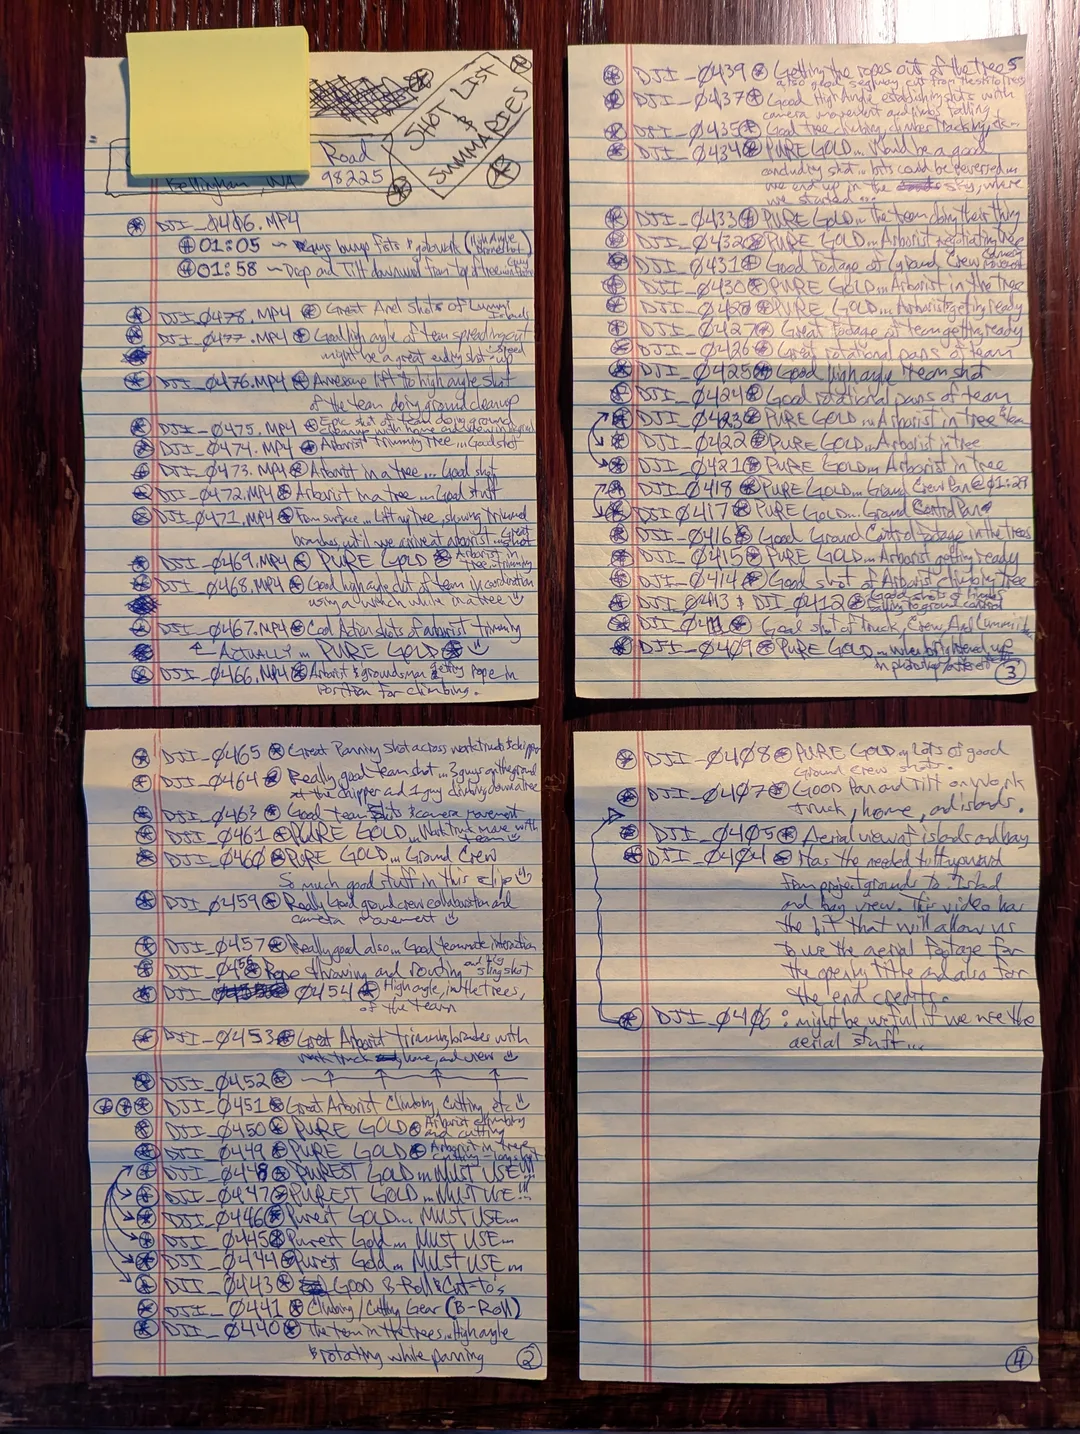 SHOT LIST
&
SUMMARIES
Road
Bellingham, WA 98225
DJI_0406.MP4
01:05 ~ Guys bump fists & go to work (High Angle
01:58 ~ Drop and Tilt downward from top of tree
DJI_0478.MP4 Great Aerial shots of Lummi
Islands
DJI_0477.MP4 Good high angle of team spreading out
might be a great ending shot - speed up
DJI_0476.MP4 Awesome lift to high angle shot
of the team doing ground cleanup
DJI_0475.MP4 Epic shot of team doing ground
cleanup with home and view in
DJI_0474.MP4 Arborist trimming tree... Good shot
DJI_0473.MP4 Arborist in a tree... Good shot
DJI_0472.MP4 Arborist in a tree... Good stuff
DJI_0471.MP4 From surface... Lifting tree, showing trimmed
branches until we arrive at arborist... Great shot
DJI_0469.MP4 PURE GOLD Arborist in
tree trimming
DJI_0468.MP4 Good high angle shot of team in coordination
using a winch while in a tree
DJI_0467.MP4 Cool Action shots of arborist trimming
ACTUALLY... PURE GOLD
DJI_0466.MP4 Arborist & groundsman getting rope in
position for climbing.
DJI_0465 Great Panning shot across work trucks & chipper
DJI_0464 Really good team shot... 3 guys on the ground
at the chipper and 1 guy climbing down a tree
DJI_0463 Good team shots & camera movement
DJI_0461 PURE GOLD... Work truck move with
team
DJI_0460 PURE GOLD... Ground Crew
So much good stuff in this clip
DJI_0459 Really Good ground crew collaboration and
camera movement
DJI_0457 Really good also... Good teammate interaction
DJI_0456 Rope throwing and routing and big
sling shot
DJI_0454 High angle, in the trees,
of the team
DJI_0453 Great Arborist trimming branches with
work truck, home, and view
DJI_0452
DJI_0451 Great Arborist Climbing, Cutting, etc
DJI_0450 PURE GOLD Arborist climbing
and cutting
DJI_0449 PURE GOLD Arborist in tree
cutting - long shot
DJI_0448 PUREST GOLD... MUST USE!!!
DJI_0447 PUREST GOLD... MUST USE!!!
DJI_0446 Purest GOLD... MUST USE...
DJI_0445 Purest Gold... MUST USE...
DJI_0444 Purest Gold... MUST USE...
DJI_0443 GOOD B-Roll & Cut-to's
DJI_0441 Climbing/Cutting Gear (B-Roll)
DJI_0440 The team in the trees... High angle
& rotating while panning
2
DJI_0439 Getting the ropes out of the trees
also good segway cut from the skit to trees
DJI_0437 Good High Angle establishing shots with
camera movement and limbs falling
DJI_0435 Good tree climbing, climber tracking, etc...
DJI_0434 PURE GOLD... Would be a good
concluding shot... bits could be reversed...
we end up in the sky, where
we started...
DJI_0433 PURE GOLD... the team doing their thing
DJI_0432 PURE GOLD... Arborist negotiating tree
DJI_0431 Good footage of Ground Crew Camera
Movement
DJI_0430 PURE GOLD... Arborist in the tree
DJI_0428 PURE GOLD... Arborist getting ready
DJI_0427 Great footage of team getting ready
DJI_0426 Great rotational pans of team
DJI_0425 Good high angle team shot
DJI_0424 Good rotational pans of team
DJI_0423 PURE GOLD... Arborist in tree & team
DJI_0422 PURE GOLD... Arborist in tree
DJI_0421 PURE GOLD... Arborist in tree
DJI_0418 PURE GOLD... Ground Crew Pan @ 01:28
DJI_0417 PURE GOLD... Ground Control Pan
DJI_0416 Good Ground Control footage in the trees
DJI_0415 PURE GOLD... Arborist getting ready
DJI_0414 Good shot of Arborist climbing tree
DJI_0413 & DJI_0412 Good shots of limbs
falling to ground control
DJI_0411 Good shot of truck, Crew, And Lummi
DJI_0409 PURE GOLD... when brightened up
in photoshop/
3
DJI_0408 PURE GOLD... Lots of good
Ground crew shots.
DJI_0407 GOOD Pan and Tilt on Work
truck, home, and islands.
DJI_0405 Aerial view of islands and bay
DJI_0404 Has the needed tilt upward
from project grounds to island
and bay view. This video has
the bit that will allow us
to use the aerial footage for
the opening title and also for
the end credits.
DJI_0406 : might be useful if we use the
aerial stuff...
4